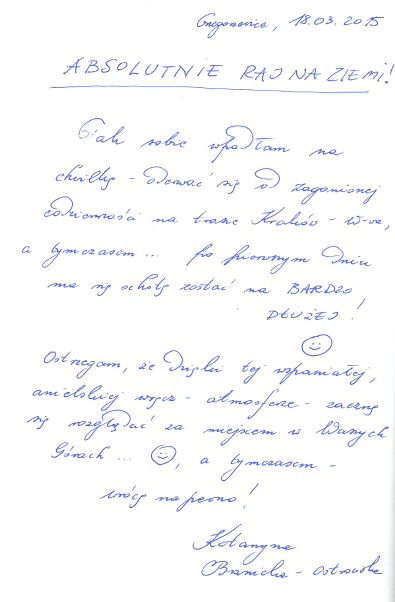 Gregorowice, 18.03.2015
ABSOLUTNIE RAJ NA ZIEMI!
Tak sobie wpadłam na
chwilkę - oderwać się od zagonionej
codzienności na trasie Kraków - W-wa,
a tymczasem ... po pierwszym dniu
ma się ochotę zostać na BARDZO
DŁUŻEJ!
Ostrzegam, że dzięki tej wspaniałej,
anielskiej wręcz - atmosferze - zacznę
się rozglądać za miejscem w Waszych
Górach ... , a tymczasem -
wrócę na pewno!
Katarzyna
Branicka - Ostrowska